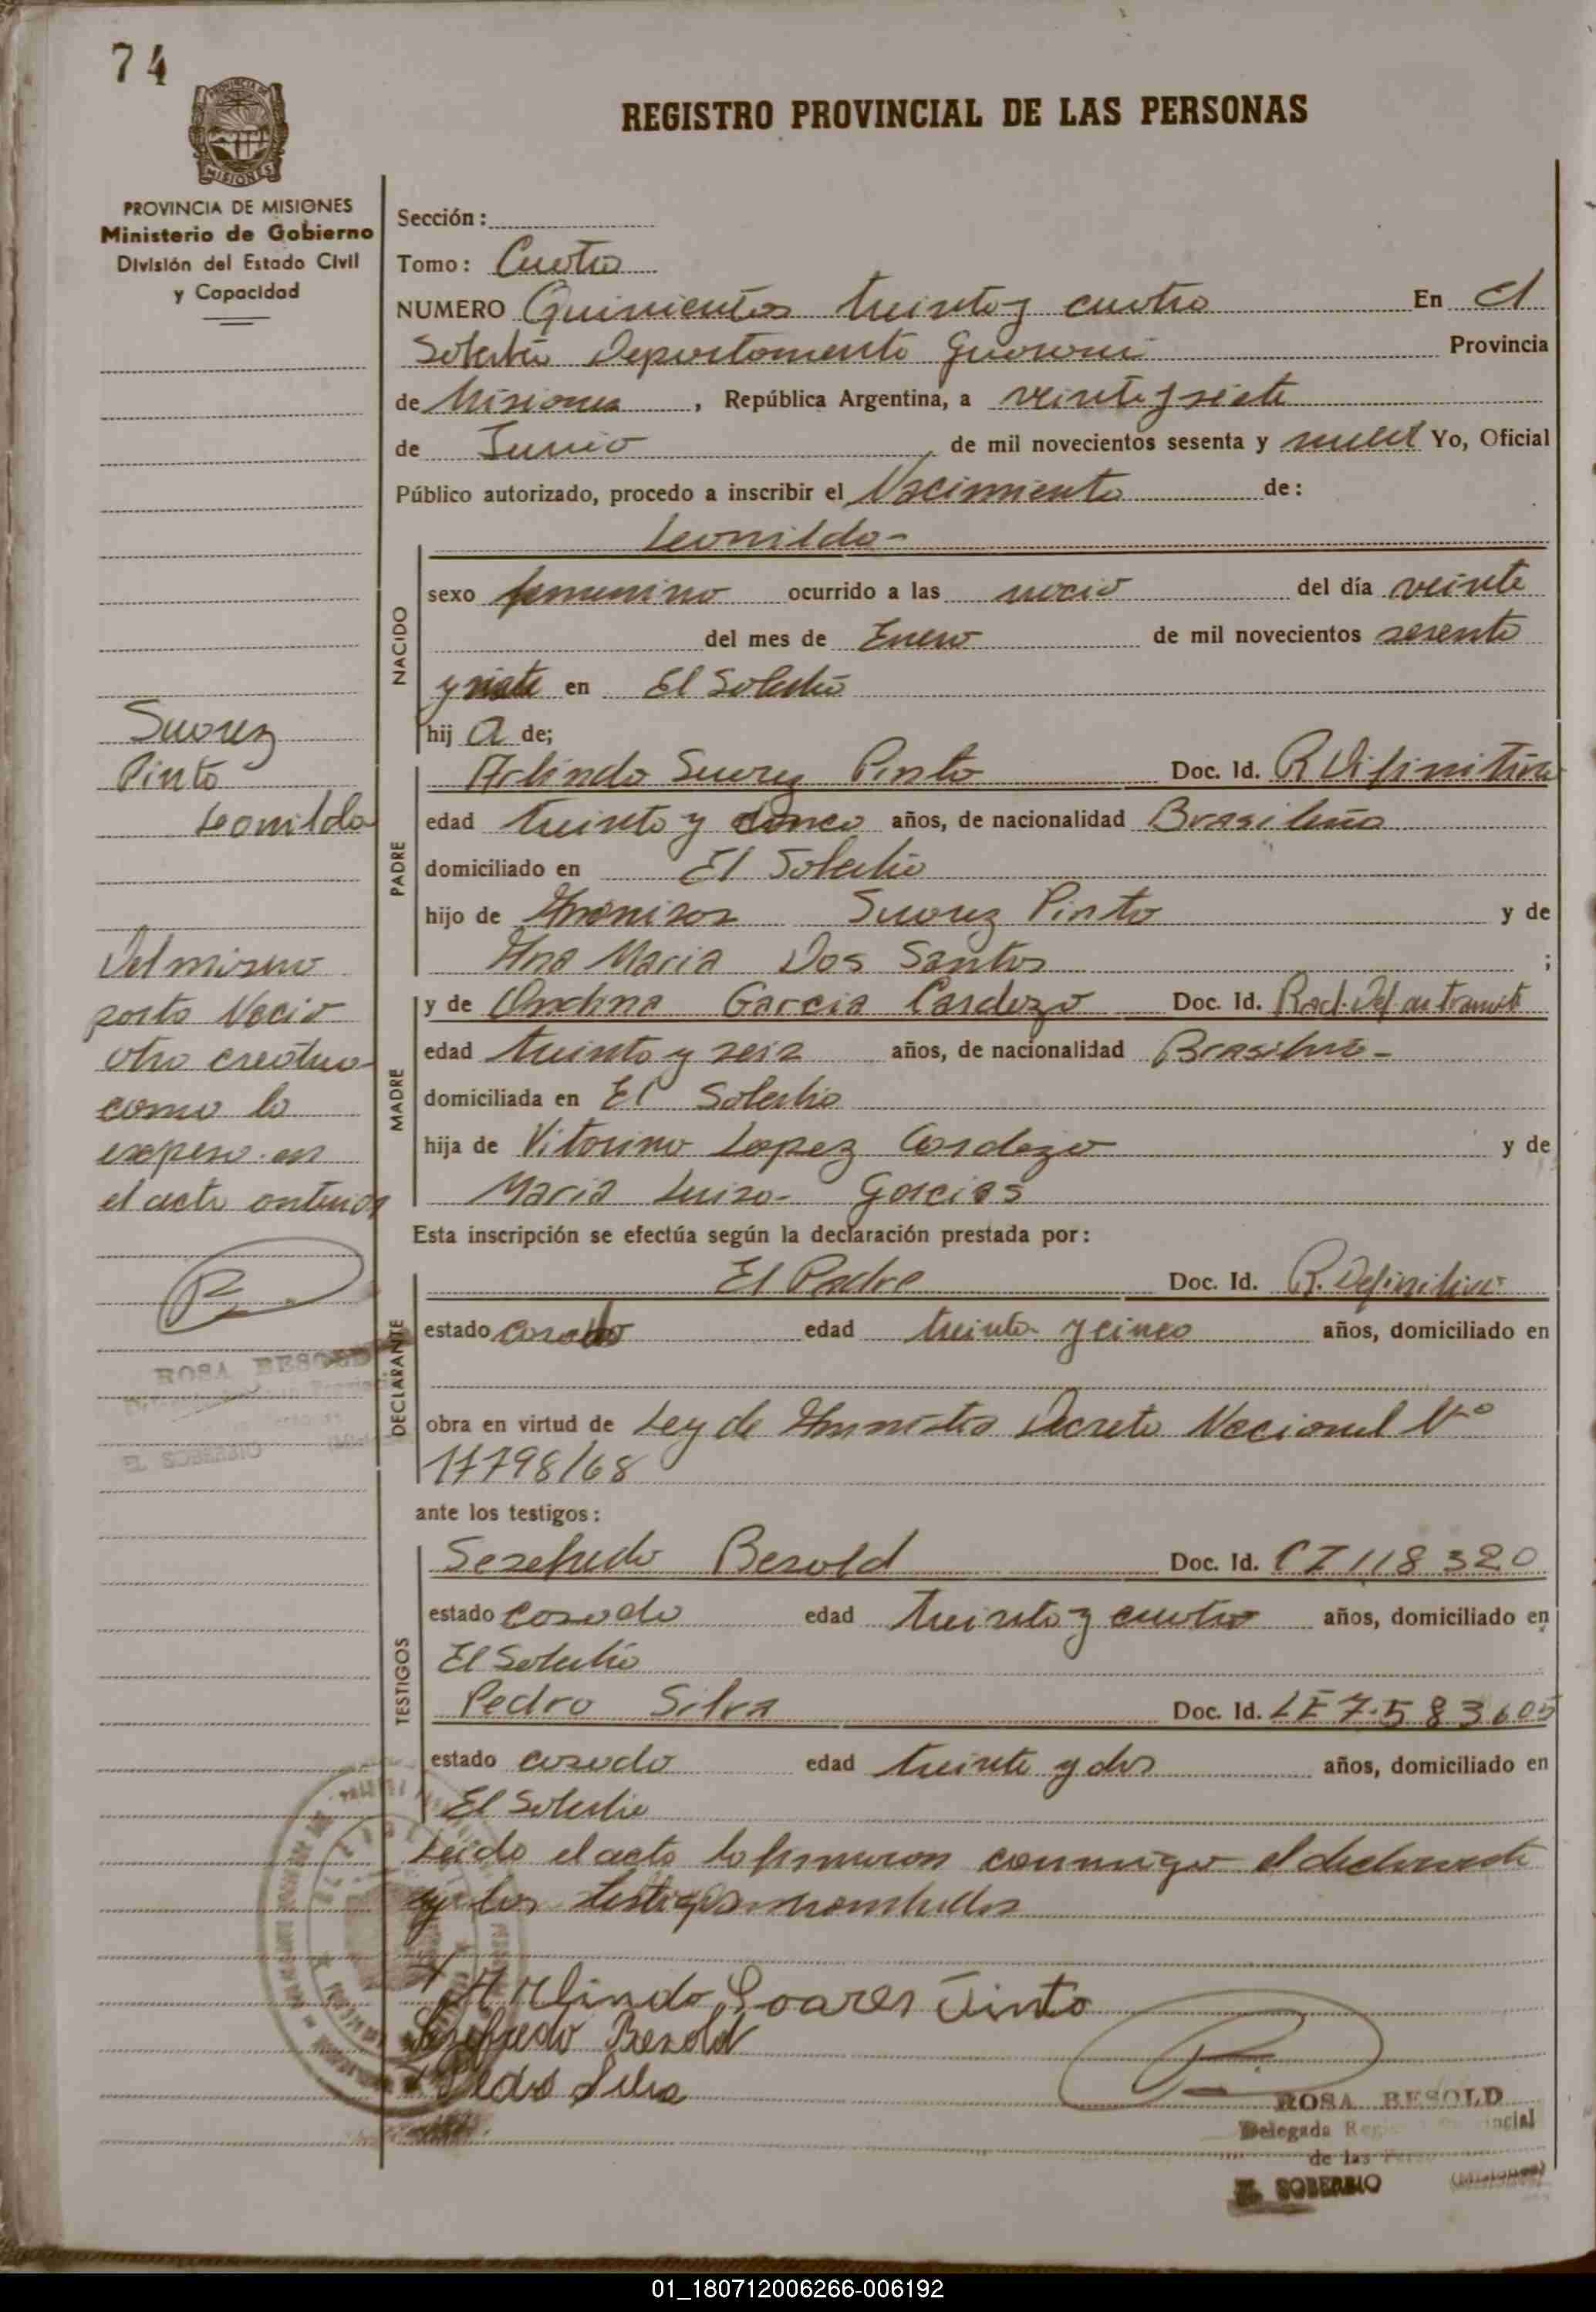 74
PROVINCIA DE MISIONES
REGISTRO PROVINCIAL DE LAS PERSONAS
PROVINCIA DE MISIONES
Ministerio de Gobierno
División del Estado Civil
y Capacidad
Sección:
Tomo: Cuatro
NUMERO Quinientos treinta y cuatro En El
Soberbio Departamento Guarani Provincia
de Misiones, República Argentina, a veinte y siete
de Junio de mil novecientos sesenta y nueve Yo, Oficial
Público autorizado, procedo a inscribir el Nacimiento de:
Leonilda-
NACIDO
sexo femenino ocurrido a las del día veinte
del mes de Enero de mil novecientos sesenta
y siete en El Soberbio
hij a de;
Suarez
Pinto
Leonilda
PADRE
Arlindo Suarez Pinto Doc. Id. R Difinitiva
edad treinta y cinco años, de nacionalidad Brasileña
domiciliado en El Soberbio
hijo de Suarez Pinto y de
Ana Maria Dos Santos ;
Del mismo
parto Nacio
otra creatura
como lo
expreso en
el acta anterior
MADRE
y de Garcia Cardozo Doc. Id. Rad. Def. en tramite
edad treinta y seis años, de nacionalidad Brasileña-
domiciliada en El Soberbio
hija de Vitorino Lopez Cardozo y de
Maria Luisa- Garcias
Esta inscripción se efectúa según la declaración prestada por:
DECLARANTE
El Padre Doc. Id. R. Definitiva
estado casado edad treinta y cinco años, domiciliado en
obra en virtud de Ley de Amnistia Decreto Nacional Nº
17798/68
ROSA BESOLD
EL SOBERBIO
ante los testigos:
TESTIGOS
Sezefredo Besold Doc. Id. CI 118320
estado casado edad treinta y cuatro años, domiciliado en
El Soberbio
Pedro Silva Doc. Id. LE 7.583605
estado casado edad treinta y dos años, domiciliado en
El Soberbio
Leida el acta la firmaron conmigo el declarante
y los testigos nombrados
Arlindo Soares Pinto
Sezefredo Besold
Pedro Silva
ROSA BESOLD
Delegada Reg Provincial
de las
EL SOBERBIO (Misiones)
01_180712006266-006192